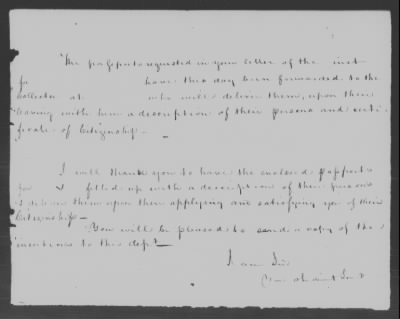 The passports requested in your letter of the inst
for have this day been forwarded to the
Collector at who will deliver them, upon their
leaving with him a description of their persons and certi-
ficate of Citizenship.—
I will thank you to have the enclosed passports
for & filled up with a description of their persons
& deliver them upon their applying and satisfying you of their
Citizenship—
You will be pleased to send a copy of the
to this dept—
I am Sir